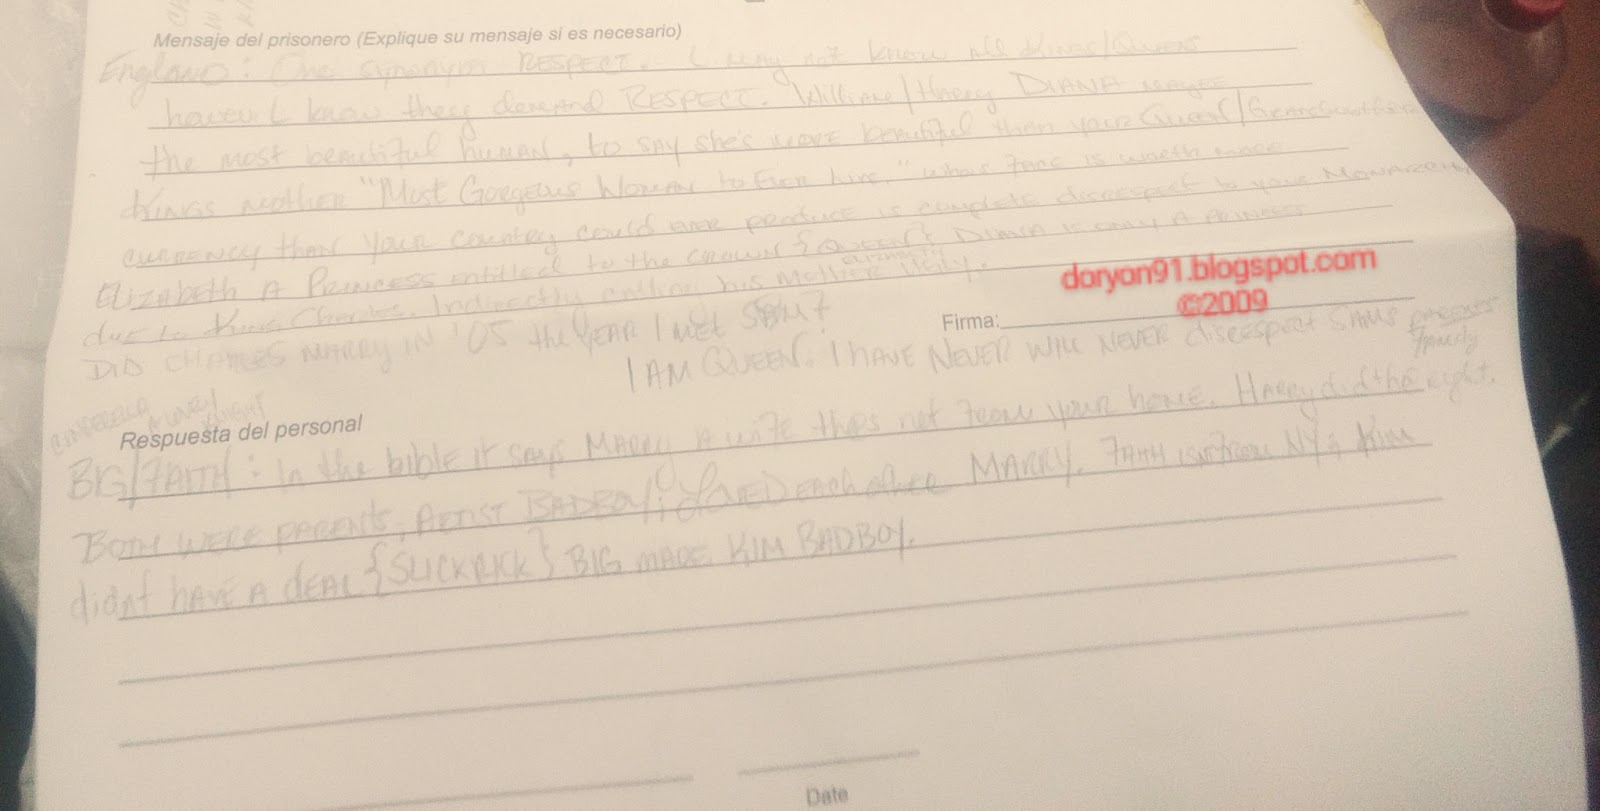 Mensaje del prisonero (Explique su mensaje si es necesario)
England: One synonym RESPECT. I may not know all Kings/Queens
however I know they demand RESPECT. William/Harry DIANA maybe
the most beautiful human, to say she's more beautiful than your Queen/Grandmother
Kings mother "Most Gorgeous Woman to Ever live." whos face is worth more
currency than your country could ever produce is complete disrespect to your Monarchy
Elizabeth A Princess entitled to the crown & QUEEN Diana is only A PRINCESS
due to King Charles. Indirectly calling his Mother Ugly.
DID CHARLES MARRY IN '05 the YEAR I MET
doryon91.blogspot.com
©2009
Firma:
I AM QUEEN. I HAVE NEVER WILL NEVER disrespect SAMS parents
family
CINDERELLA
Respuesta del personal
BIG/FAITH: In the bible it says MARRY A wife thats not from your home. Harry did the right.
BOTH WERE PARENTS, ARTIST BADBOY, LOVED each other MARRY. FAITH isn't from NY & KIM
didnt HAVE A DEAL {SLICKRICK} BIG MADE KIM BADBOY.
Date